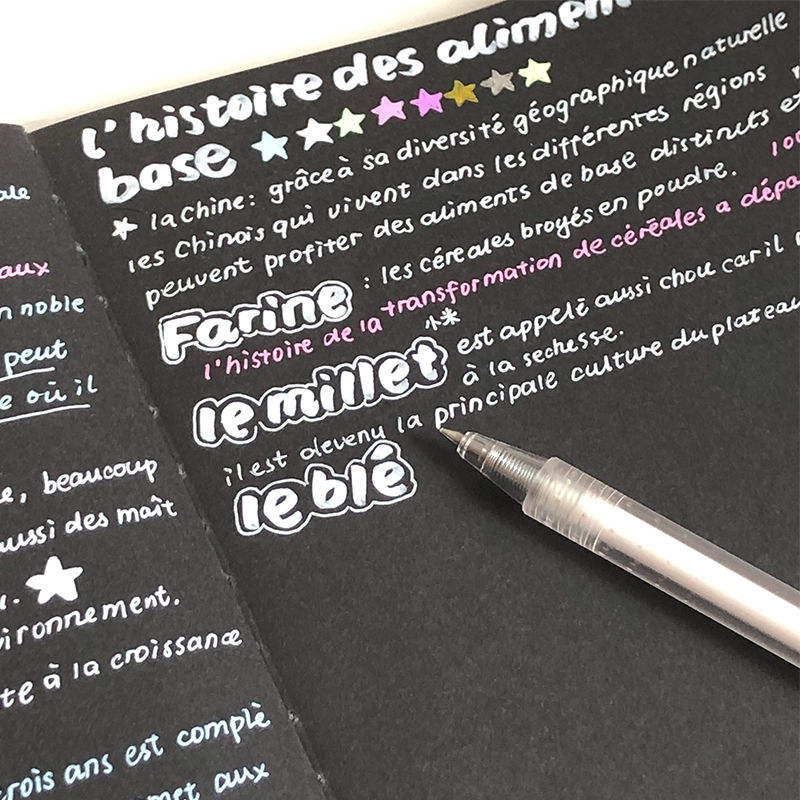 ale
aux
n noble
peut
e où il
e, beaucoup
aussi des maît
ironnement.
te à la croissance
trois ans est complè
met aux
l'histoire des aliment
base
la Chine: grâce à sa diversité géographique naturelle
les Chinois qui vivent dans les différentes régions
peuvent profiter des aliments de base distincts et
Farine : les céréales broyés en poudre.
l'histoire de la transformation de céréales a dépa 100
小米
le millet est appelé aussi chou car il
à la sechesse.
il est devenu la principale culture du plateau
le blé